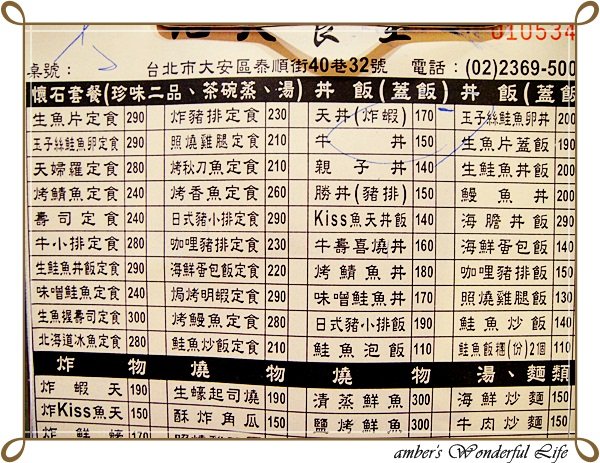 食堂
010534
桌號：
台北市大安區泰順街40巷32號 電話：(02)2369-500
懷石套餐(珍味二品、茶碗蒸、湯) 丼飯(蓋飯) 丼飯(蓋飯
生魚片定食 290 炸豬排定食 230 天丼(炸蝦) 170 玉子絲鮭魚卵丼 200
玉子絲鮭魚卵定食 290 照燒雞腿定食 210 牛丼 150 生魚片蓋飯 190
天婦羅定食 280 烤秋刀魚定食 210 親子丼 140 生鮭魚丼飯 200
烤鯖魚定食 240 烤香魚定食 290 勝丼(豬排) 150 鰻魚丼 200
壽司定食 240 日式豬小排定食 290 Kiss魚天丼飯 140 海膽丼飯 290
牛小排定食 280 咖哩豬排定食 230 牛壽喜燒丼 160 海鮮蛋包飯 140
生鮭魚丼飯定食 290 海鮮蛋包飯定食 220 烤鯖魚丼 180 咖哩豬排飯 150
味噌鮭魚定食 240 焗烤明蝦定食 290 味噌鮭魚丼 170 照燒雞腿飯 130
生魚握壽司定食 300 烤鰻魚定食 280 日式豬小排飯 190 鮭魚炒飯 140
北海道冰魚定食 280 鮭魚炒飯定食 210 鮭魚泡飯 110 鮭魚飯糰(份)2個 110
炸物 燒物 燒物 湯、麵類
炸蝦天 190 生蠔起司燒 190 清蒸鮮魚 300 海鮮炒麵 150
炸Kiss魚天 150 酥炸角瓜 150 鹽烤鮮魚 300 牛肉炒麵 150
炸鮮蚵
amber's Wonderful Life